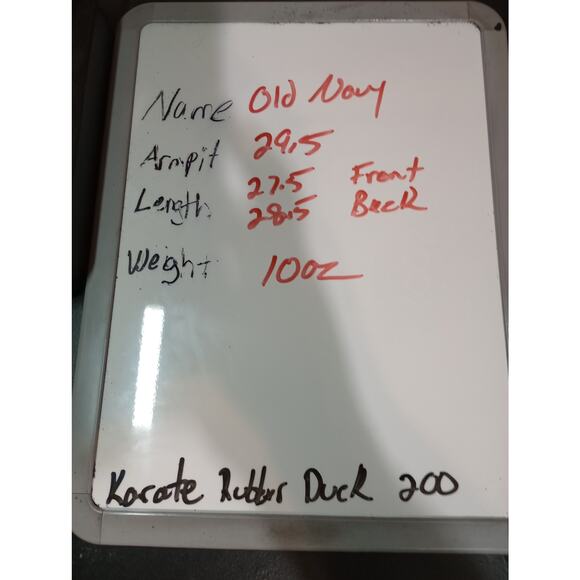 Name Old Navy
Armpit 29.5
Length 27.5 Front
28.5 Back
Weight 10oz
Karate Rubber Duck 200